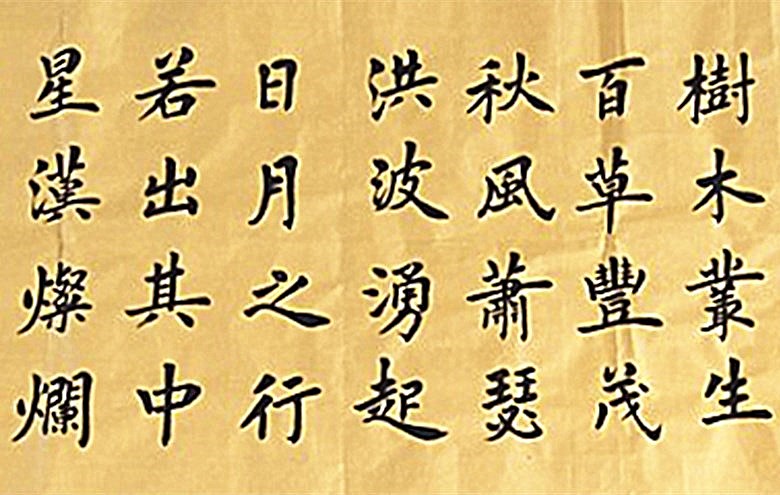 樹木叢生
百草豐茂
秋風蕭瑟
洪波湧起
日月之行
若出其中
星漢燦爛